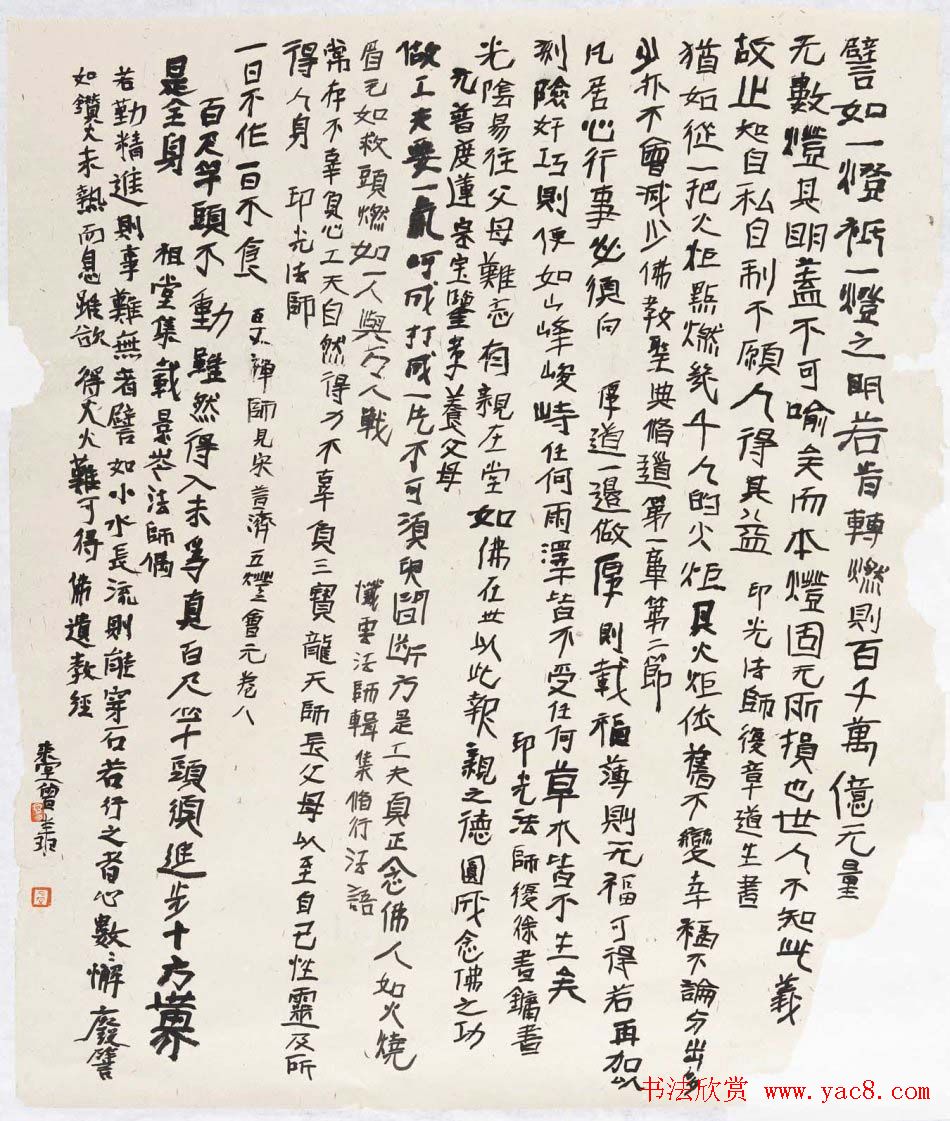 譬如一燈祇一燈之明若肯轉燃則百千萬億无量
无數燈其明蓋不可喻矣而本燈固无所損也世人不知此義
故止知自私自利不願人得其益 印光法師復章道生書
猶如從一把火柜點燃幾千人的火炬其火炬依舊不變幸福不論分出多
少亦不會减少佛教聖典脩道第一章第二節
凡居心行事必須向厚道一邊做厚則載福薄則无福可得若再加以
刻險奸巧則便如山峰峻峙任何雨澤皆不受任何草木皆不生矣
印光法師復徐書鏞書
光陰易往父母難忘有親在堂如佛在世以此報親之德圓成念佛之功
元普度蓮宗宝鑒孝養父母
做工夫要一氣呵成打成一片不可須臾間断方是工夫真正念佛人如火燒
眉毛如救頭燃如一人與万人戰 懺雲法師輯集脩行法語
常存不辜負心工夫自然得力不辜負三寶龍天師長父母以至自己性靈及所
得人身 印光法師
一日不作一日不食 百丈禅師見宋普濟五燈會元卷八
百尺竿頭不動 雖然得入未為真百尺竿頭須進步十方世界
是全身 祖堂集載景岑法師偈
若勤精進則事難無者譬如小水長流則能穿石若行之者心數々懈廢譬
如鑽火未熱而息雖欲得火火難可得 佛遺教經
書法欣赏 www.yac8.com